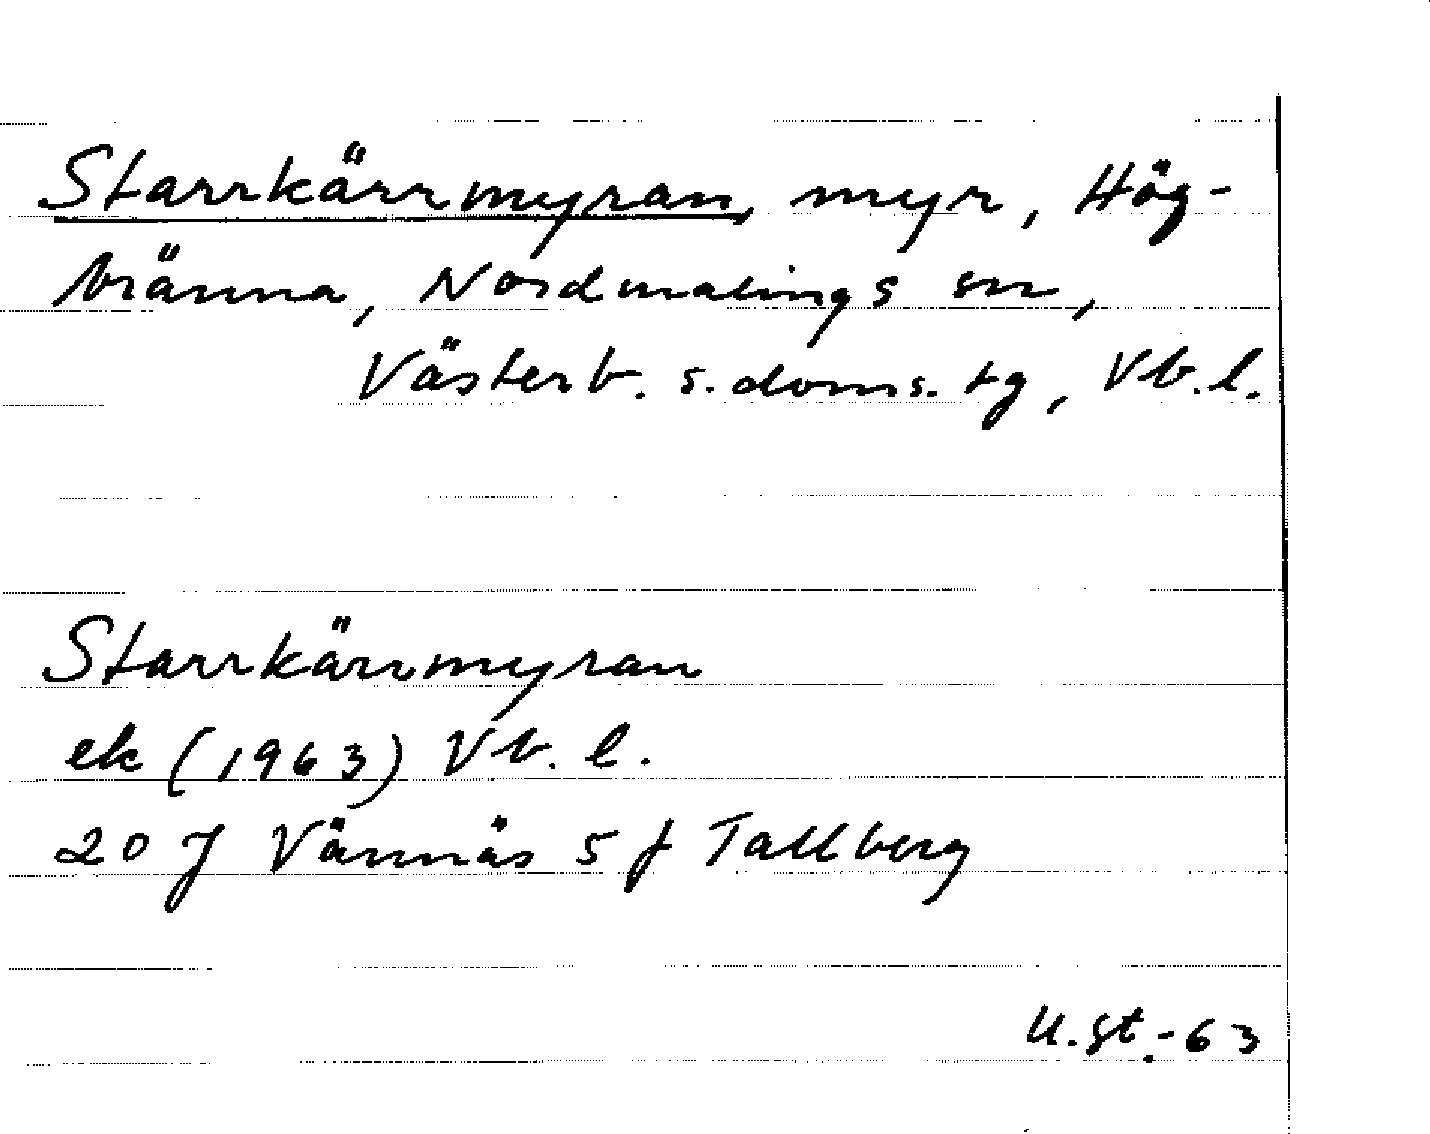 Starrkärrmyran, myr, Hög-
bränna, Nordmalings sn,
Västerb. s. doms. tg, Vb. l.
Starrkärrmyran
ek (1963) Vb. l.
20 J Vännäs 5 f Tallberg
U. St. -63